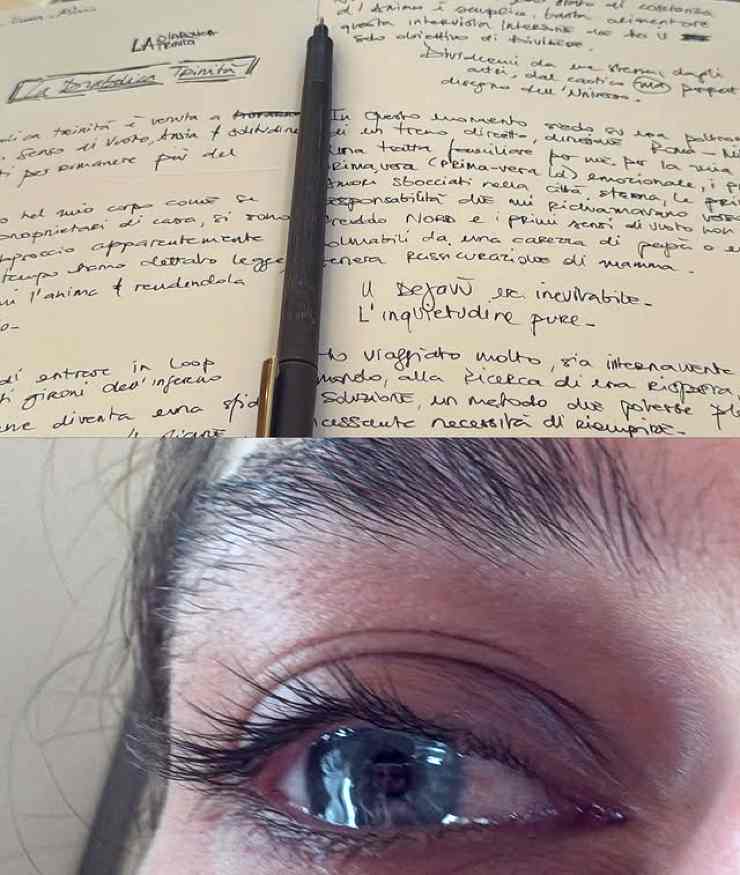 LA DIABOLICA
TRINITÀ
La Diabolica Trinità
trinità è venuta a
senso di Vuoto, Ansia & solitudine
per rimanere più del
nel mio corpo come se
proprietari di casa, si sono
approccio apparentemente
tempo hanno dettato legge,
l'anima & rendendola
di entrare in loop
gironi dell'inferno
diventa una
di costanza
d'Animo è semplice, basta alimentare
questa intervista Interiore che ha il
solo obiettivo di dividere.
Dividermi da me stessa, dagli
altri, dal caotico ma
disegno dell'Universo.
In questo momento siedo su una
di un treno diretto, direzione Roma -
una tratta familiare per me, per la mia
Prima, vera (Prima-vera (d) emozionale, i
Amori sbocciati nella città eterna, le
responsabilità che mi richiamavano verso
freddo Nord e i primi sensi di vuoto non
colmabili da una carezza di papà o
tenera rassicurazione di mamma.
Il Dejavù era inevitabile.
L'inquietudine pure.
Ho viaggiato molto, sia internamente
mondo, alla ricerca di una risposta,
soluzione, un metodo che potesse
incessante necessità di riempire.